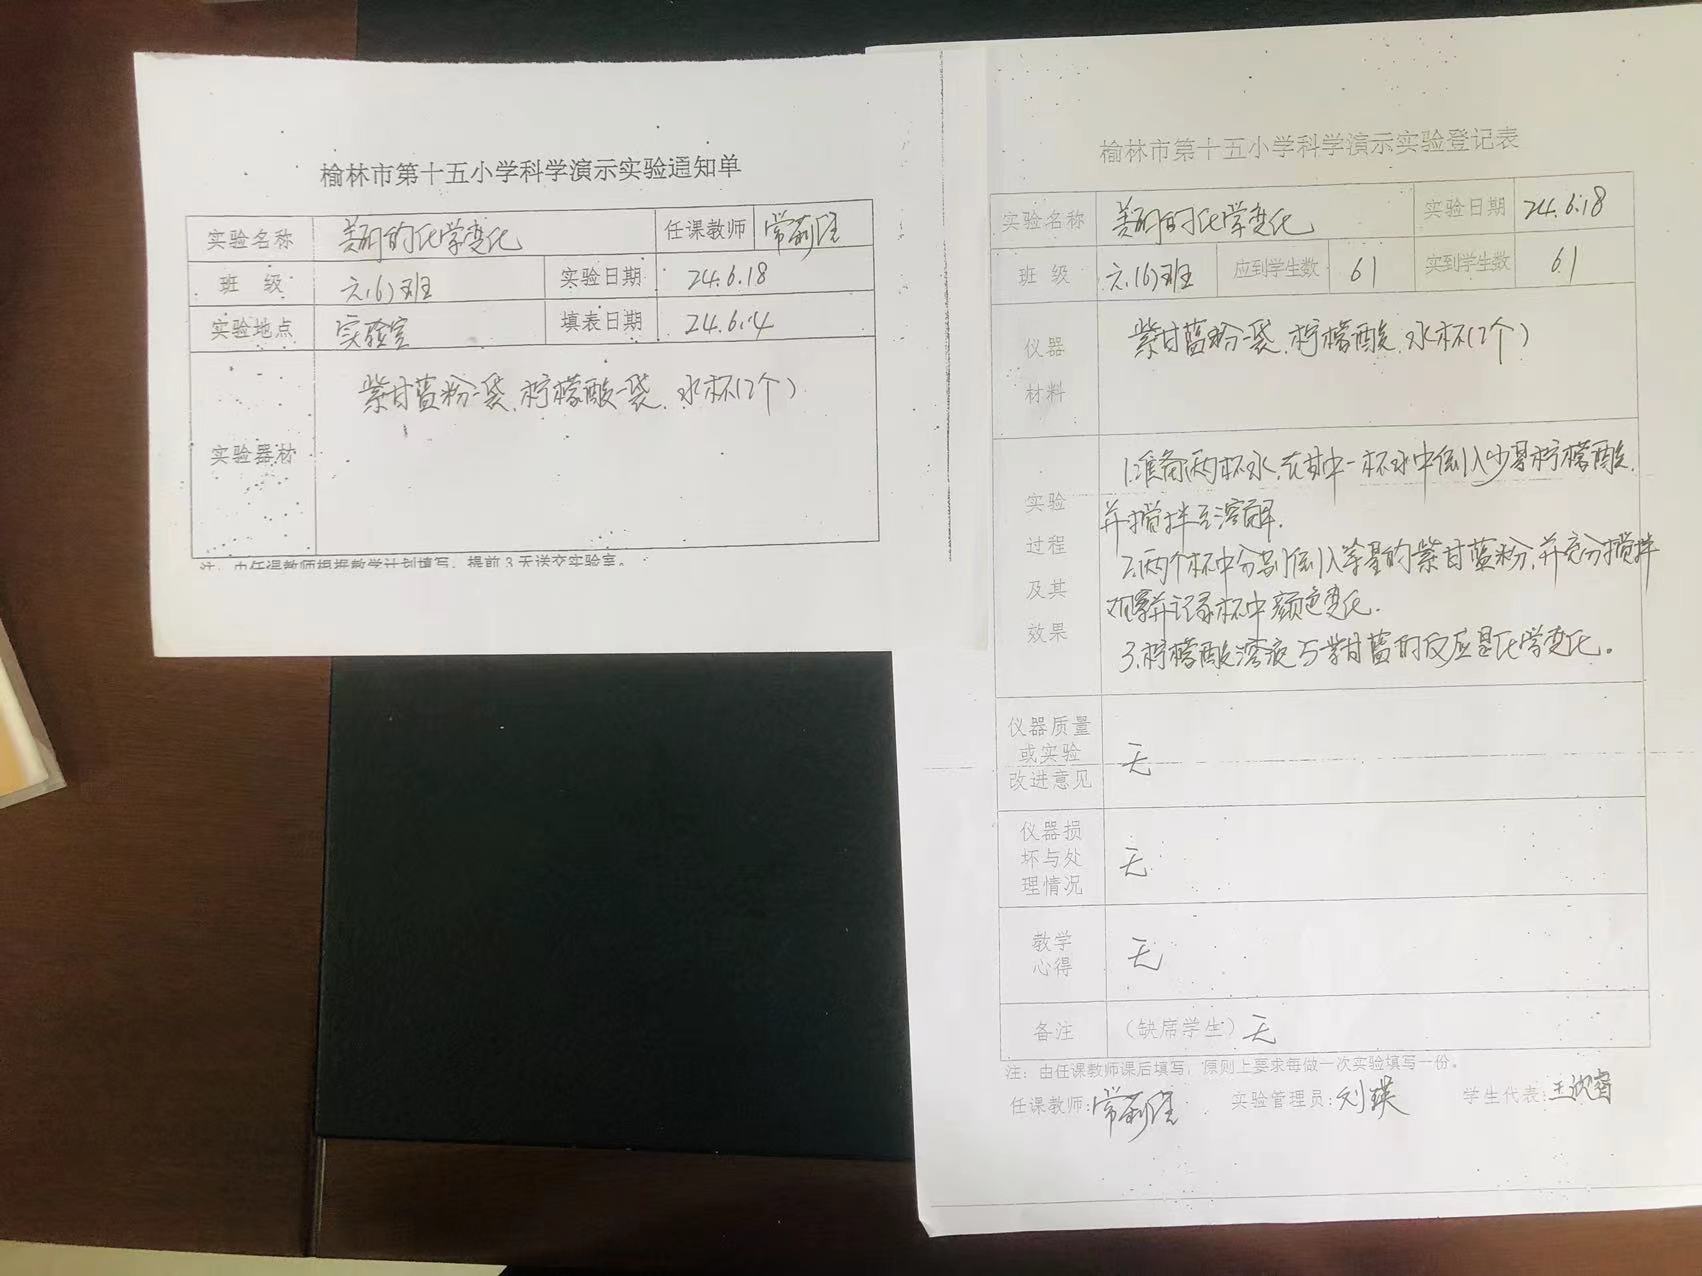 榆林市第十五小学科学演示实验通知单
实验名称 美丽的化学变化 任课教师
班 级 六(6)班 实验日期 24.6.18
实验地点 实验室 填表日期 24.6.14
实验器材 紫甘蓝粉一袋、柠檬酸一袋、水杯(2个)
注：由任课教师根据教学计划填写，提前3天送交实验室。
榆林市第十五小学科学演示实验登记表
实验名称 美丽的化学变化 实验日期 24.6.18
班 级 六(6)班 应到学生数 61 实到学生数 61
仪器
材料
紫甘蓝粉一袋、柠檬酸、水杯(2个)
实验
过程
及其
效果
1.准备两杯水,在其中一杯水中倒入少量柠檬酸,
并搅拌至溶解.
2.两个杯中分别倒入等量的紫甘蓝粉,并充分搅拌
观察并记录杯中颜色变化.
3.柠檬酸溶液与紫甘蓝的反应是化学变化。
仪器质量
或实验
改进意见
无
仪器损
坏与处
理情况
无
教学
心得
无
备注 （缺席学生）无
注：由任课教师课后填写，原则上要求每做一次实验填写一份。
任课教师: 实验管理员:刘瑛 学生代表: